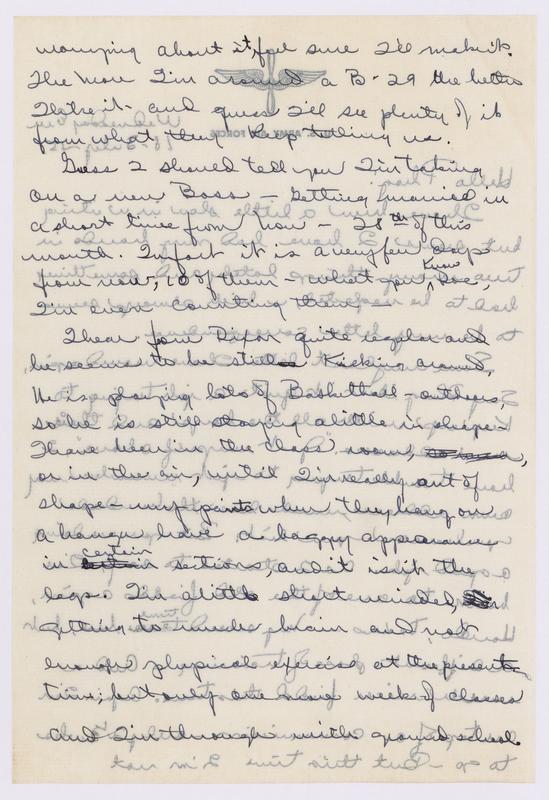 worrying about it, feel sure I'll make it.
The more I'm around a B-29 the better
I like it - and guess I'll see plenty of it
from what they keep telling us.
Guess I should tell you I'm taking
on a new Boss - Getting married in
a short time from now - 28th of this
month. In fact it is a very few days
from now, 10 of them - what you know Doc,
I'm even counting them.
I hear from Dixon quite regular and
he seems to be still Kicking around,
He is playing lots of Basketball - out here,
so he is still staying a little in shape.
I have been in the class room,
or in the air, until I'm really out of
shape - my pants when they hang on
a hanger have a baggy appearance
in certain sections, and it isn't the
legs. I'm a little short winded,
getting to much brain and not
enough physical exercise at the present
time, but only one more week of classes
and I'm through with ground school.